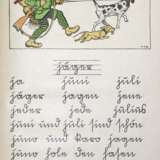 jäger
ja juni juli
jäger jagen jene
jeder jede julius
juni und juli sind schön
juno und karo jagen
juno hole den hasen